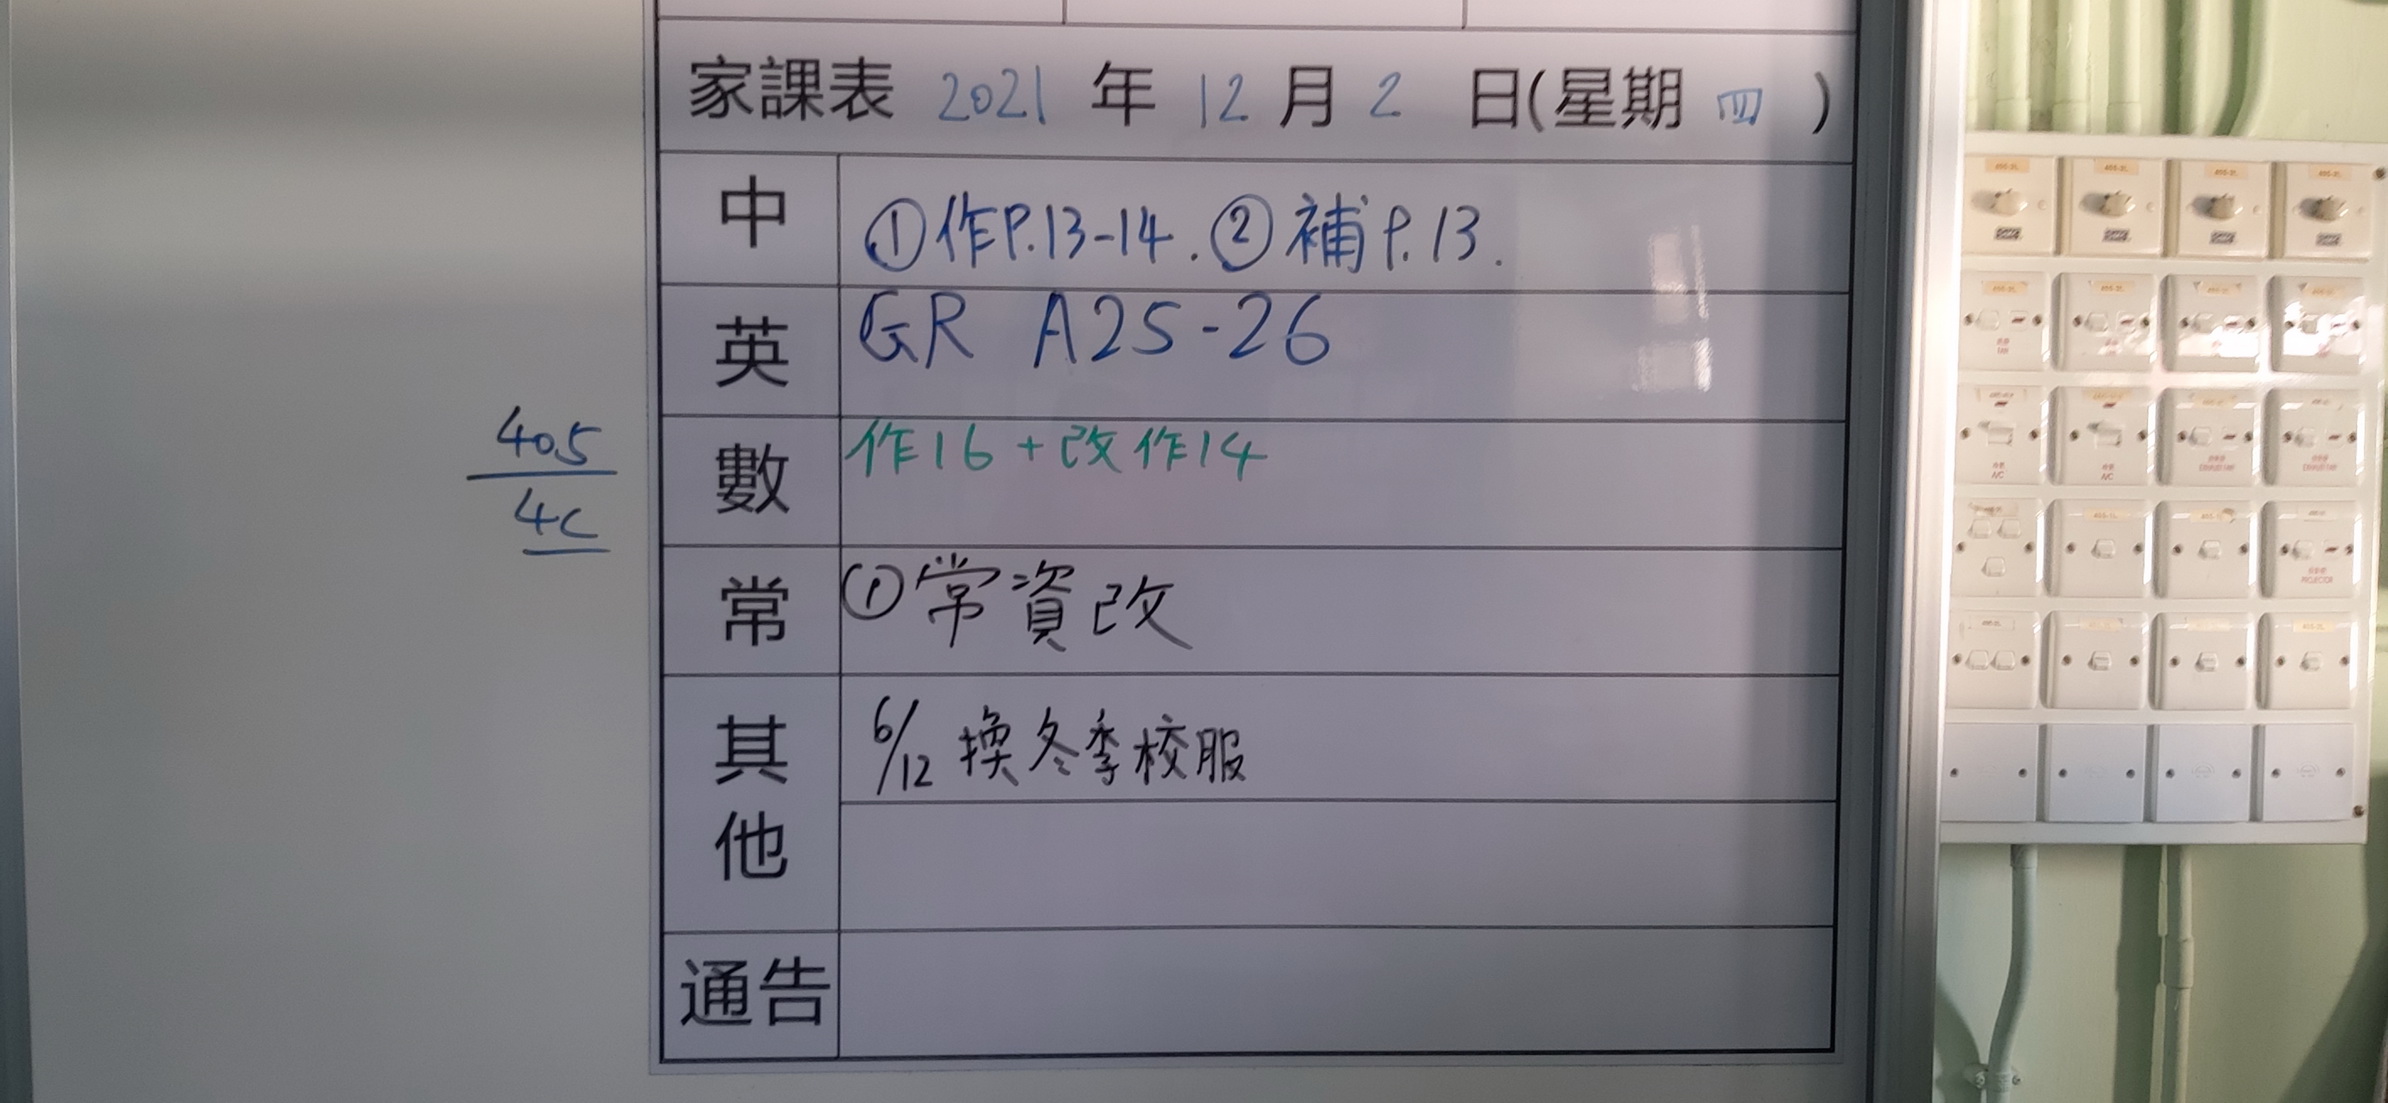 家課表 2021 年 12 月 2 日(星期 四 )
中 ①作P.13-14. ②補P.13.
英 GR A25-26
數 作16+改作14
常 ①常資改
其他 6/12 換冬季校服
通告
405
4C